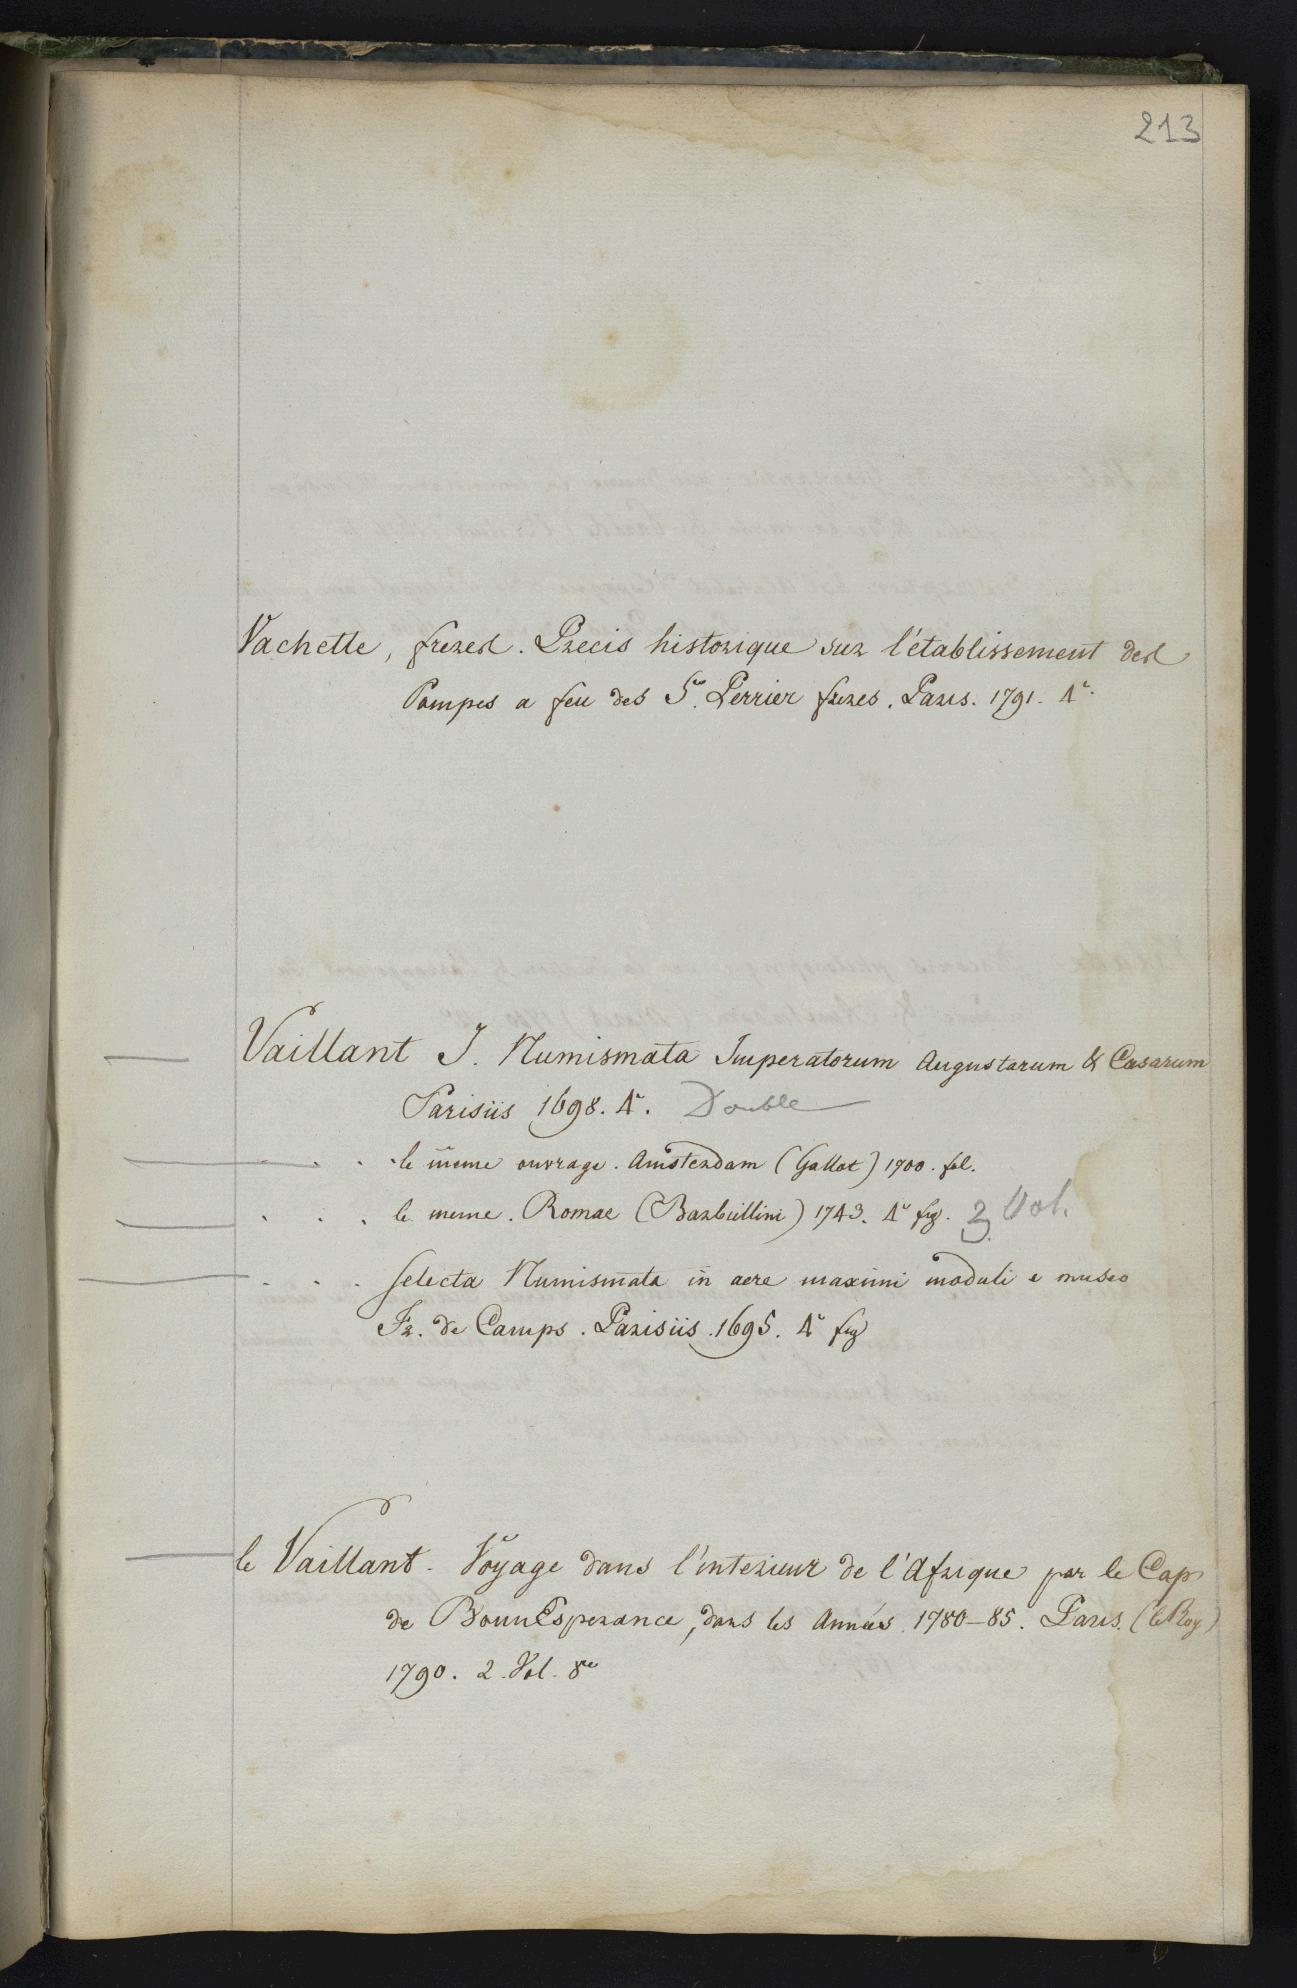 213
Vachette, freres. Precis historique sur l'établissement des
Pompes a feu des Sr. Perrier freres. Paris. 1791. 4º.
Vaillant J. Numismata Imperatorum Augustarum & Cæsarum
Parisiis 1698. 4º. Double
le meme ouvrage. Amsterdam (Gallot) 1700. fol.
le meme. Romae (Barbiellini) 1743. 4º fig. 3 Vol.
Selecta Numismata in aere maximi moduli e museo
Fr. de Camps. Parisiis. 1695. 4º fig
le Vaillant. Voyage dans l'interieur de l'Afrique par le Cap
de BonnEsperance, dans les Années 1780-85. Paris. (leRoy)
1790. 2. Vol. 8º